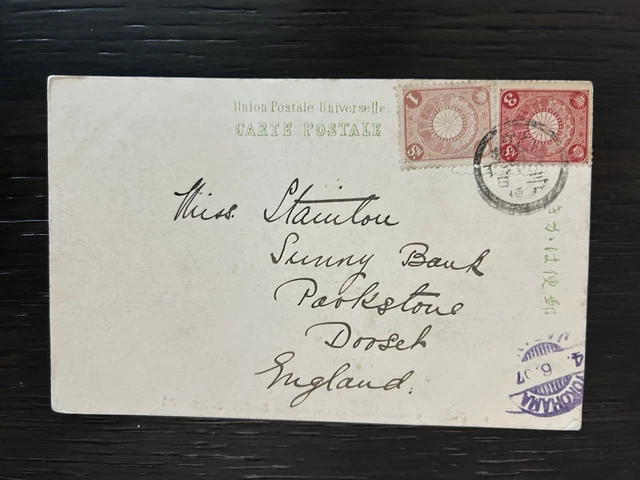 Union Postale Universelle.
CARTE POSTALE
1
3
Miss. Stainton
Sunny Bank
Parkstone
Dorset
England.
きがは便郵
YOKOHAMA
4.6.07